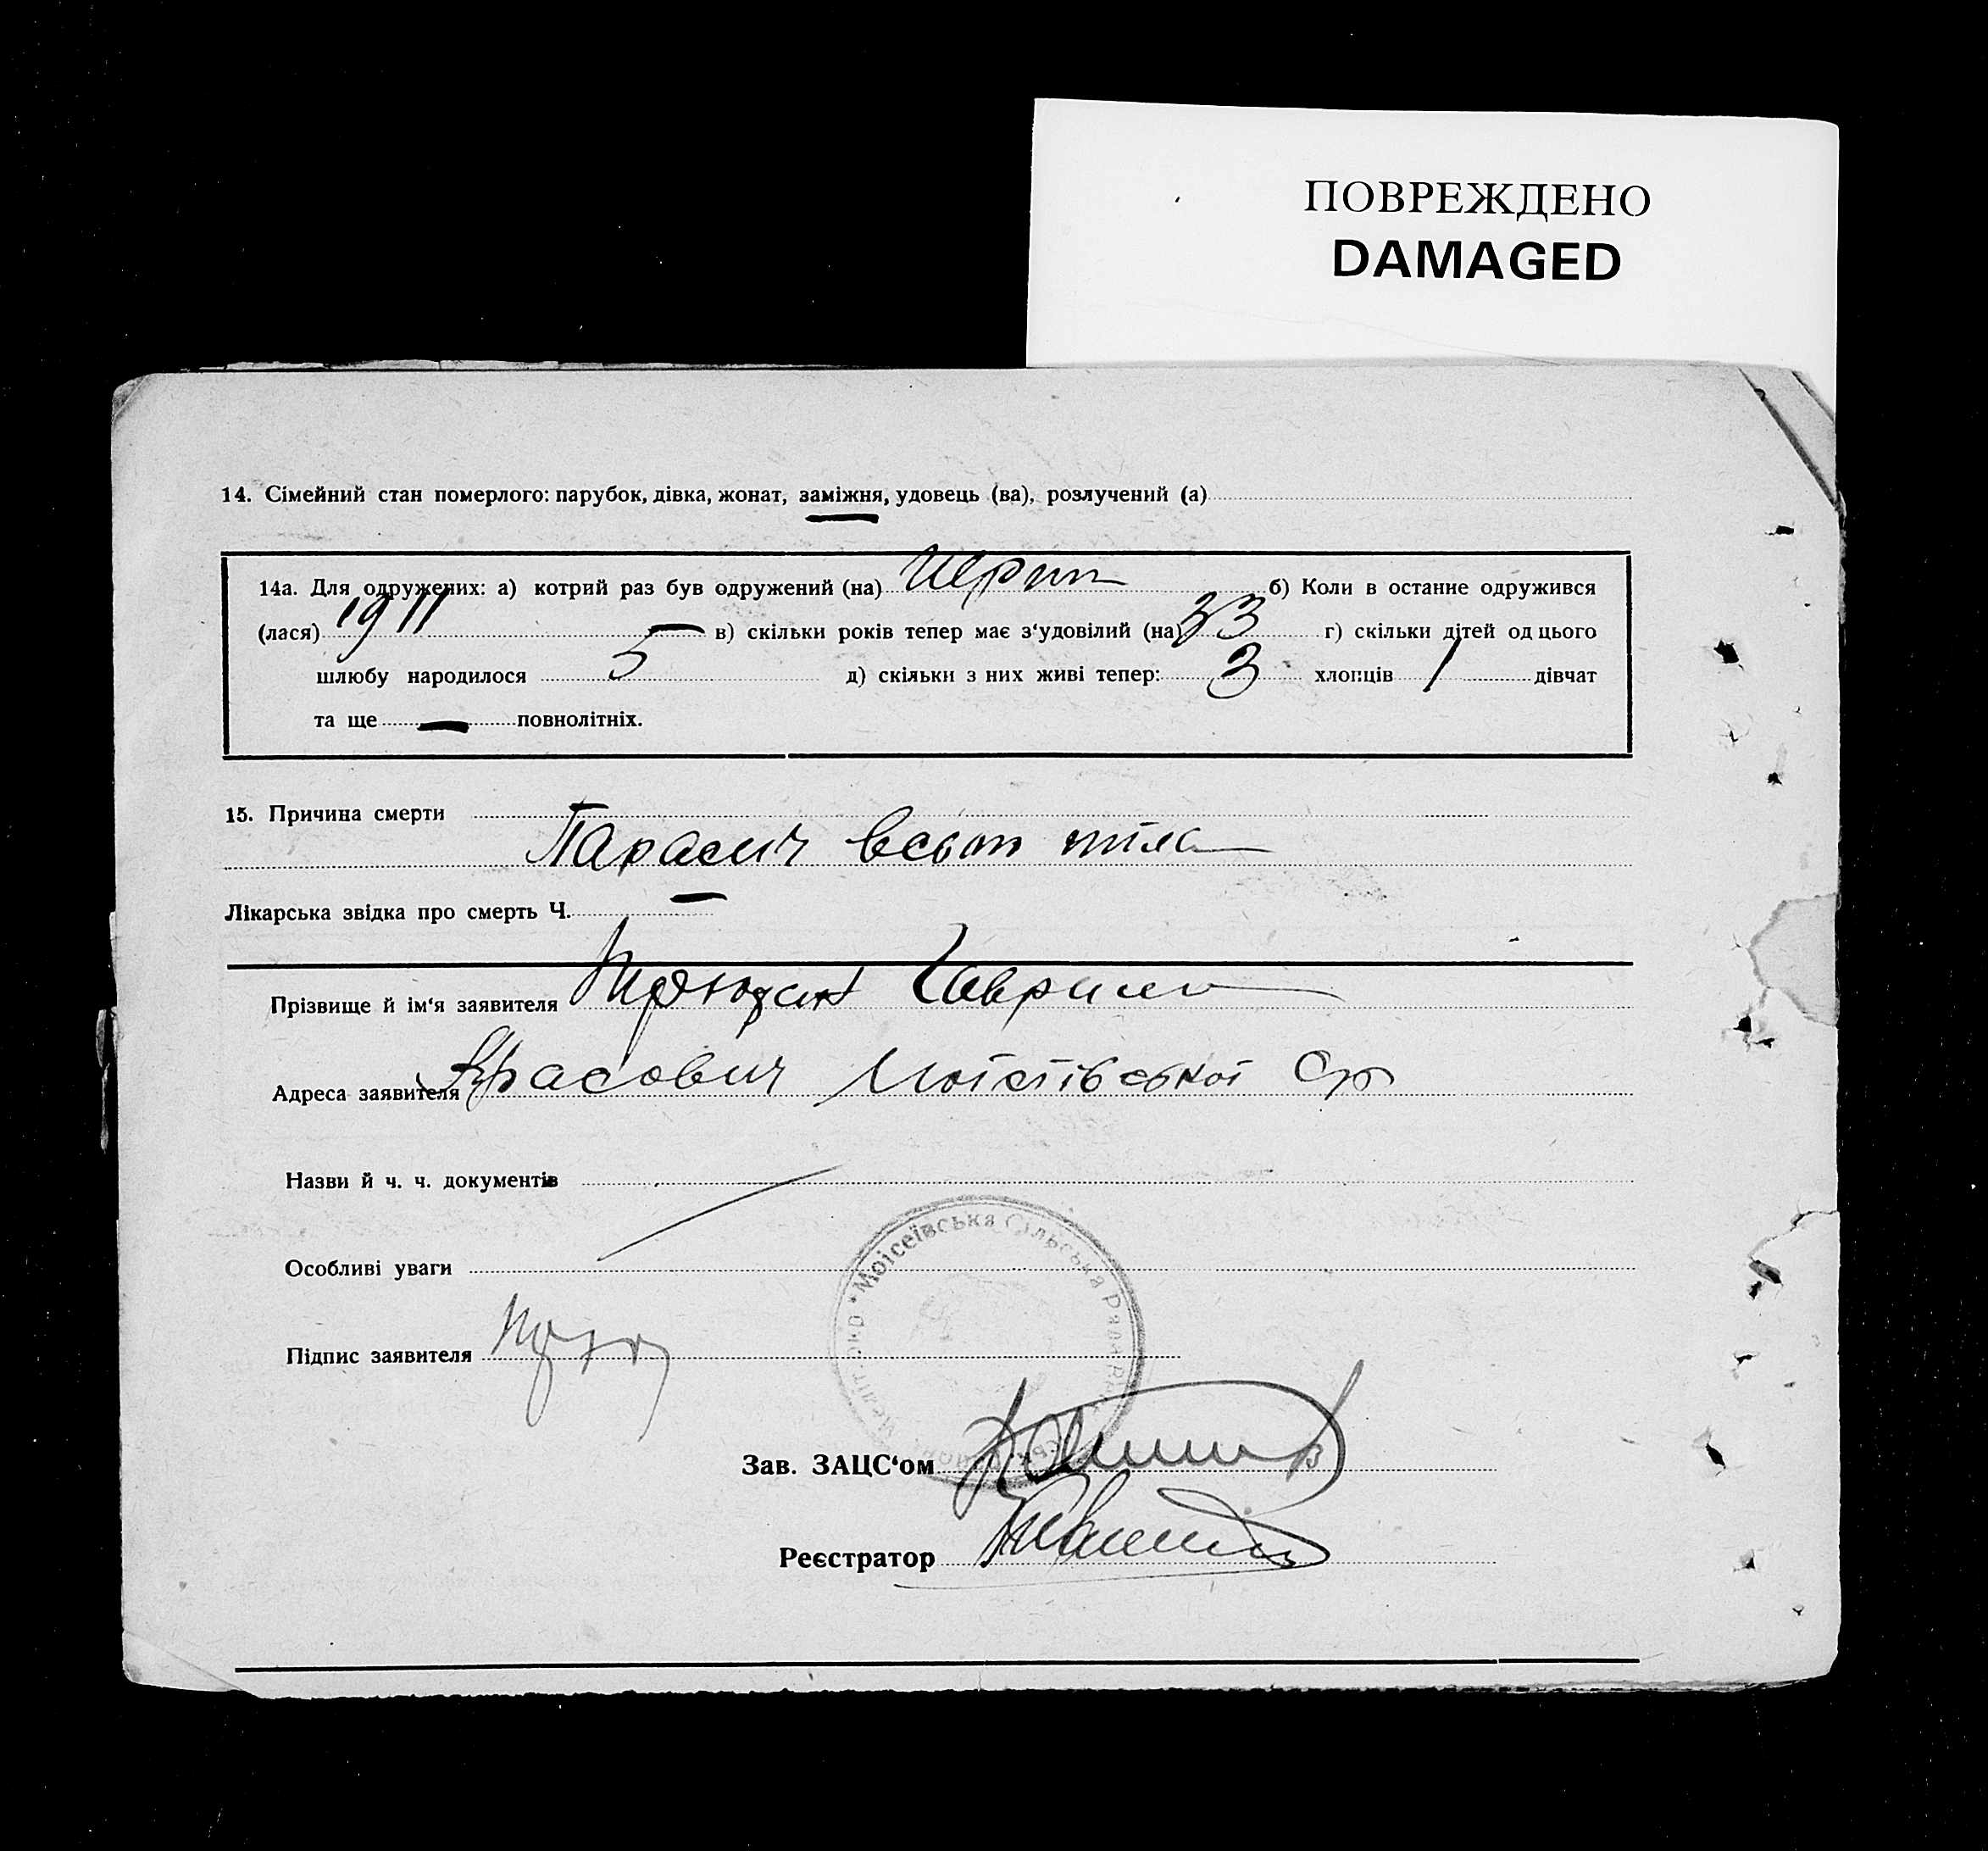 ПОВРЕЖДЕНО
DAMAGED
14. Сімейний стан померлого: парубок, дівка, жонат, заміжня, удовець (ва), розлучений (а)
14а. Для одружених: а) котрий раз був одружений (на) б) Коли в останне одружився
(лася) 1911 — в) скільки років тепер має з‘удовілий (на) 33 г) скільки дітей од цього
шлюбу народилося 5 д) скільки з них живі тепер: 3 хлопців 1 дівчат
та ще — повнолітніх.
15. Причина смерти
Параліч всього тіла
Лікарська звідка про смерть Ч. —
Прізвище й ім‘я заявителя Гаврило
Адреса заявителя Моісеївської С/р
Назви й ч. ч. документів
Особливі уваги
Моісеївська Сільська Рада
Підпис заявителя
Зав. ЗАЦС‘ом
Реєстратор